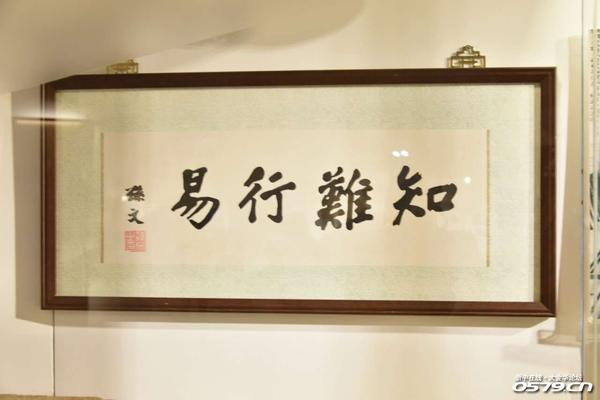 知難行易
孫文
0579.CN